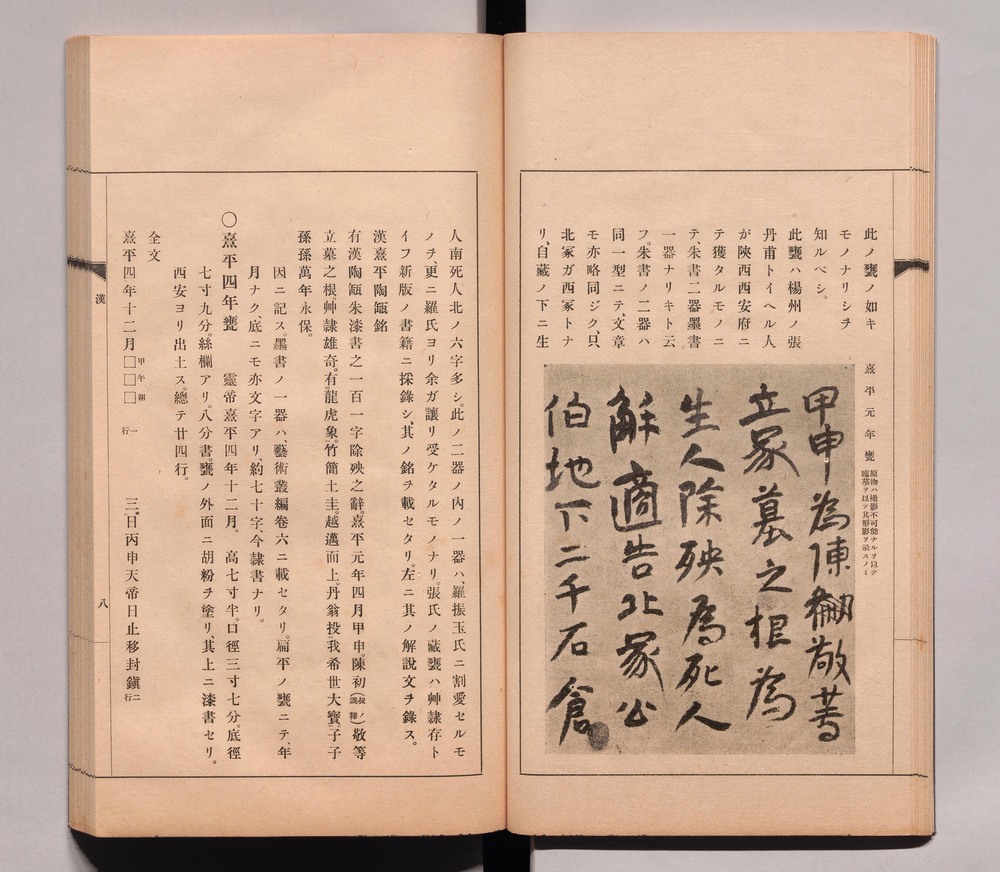 此ノ甕ノ如キ
モノナリシチ
知ルベシ。
此甕ハ楊州ノ張
丹甫トイヘル人
が陝西西安府ニ
テ獲タルモノニ
テ、朱書二器墨書
一器ナリキト云
フ。朱書ノ二器ハ
同一型ニテ、文章
モ亦略同ジク、只
北冢ガ西冢トナ
リ、自藏ノ下ニ生
熹平元年甕
原物ハ撮影不可能ナルヲ以テ
臨摹ヲ以テ其形影ヲ示スノミ
甲申為陳
敬等
立冢墓之根為
生人除殃為死人
解適告北冢公
伯地下二千石倉
人南死人北ノ六字多シ。此ノ二器ノ内ノ一器ハ、羅振玉氏ニ割愛セルモ
ノチ、更ニ羅氏ヨリ余ガ讓リ受ケタルモノナリ。張氏ノ藏甕ハ艸隷存ト
イフ新版ノ書籍ニ採錄シ、其ノ銘ヲ載セタリ。左ニ其ノ解說文ヲ錄ス。
漢熹平陶瓿銘
有漢陶瓿朱漆書之一百一字除殃之辭。熹平元年四月甲申。陳初(叔ノ誤釋)敬等
立墓之根。艸隷雄奇。有龍虎象。竹簡土圭。越邁而上。丹翁投我希世大寶。子子
孫孫萬年永保。
因ニ記ス。墨書ノ一器ハ、藝術叢編卷六ニ載セタリ。扁平ノ甕ニテ、年
月ナク、底ニモ亦文字アリ、約七十字今隷書ナリ。
〇熹平四年甕 靈帝熹平四年十二月。 高七寸半。口徑三寸七分。底徑
七寸九分。絲欄アリ。八分書。甕ノ外面ニ胡粉ヲ塗リ、其上ニ漆書セリ。
西安ヨリ出土ス。總テ廿四行。
全文
熹平四年十二月甲午朔□□□一行 三日丙申天帝日止移封鎭二行
漢
八